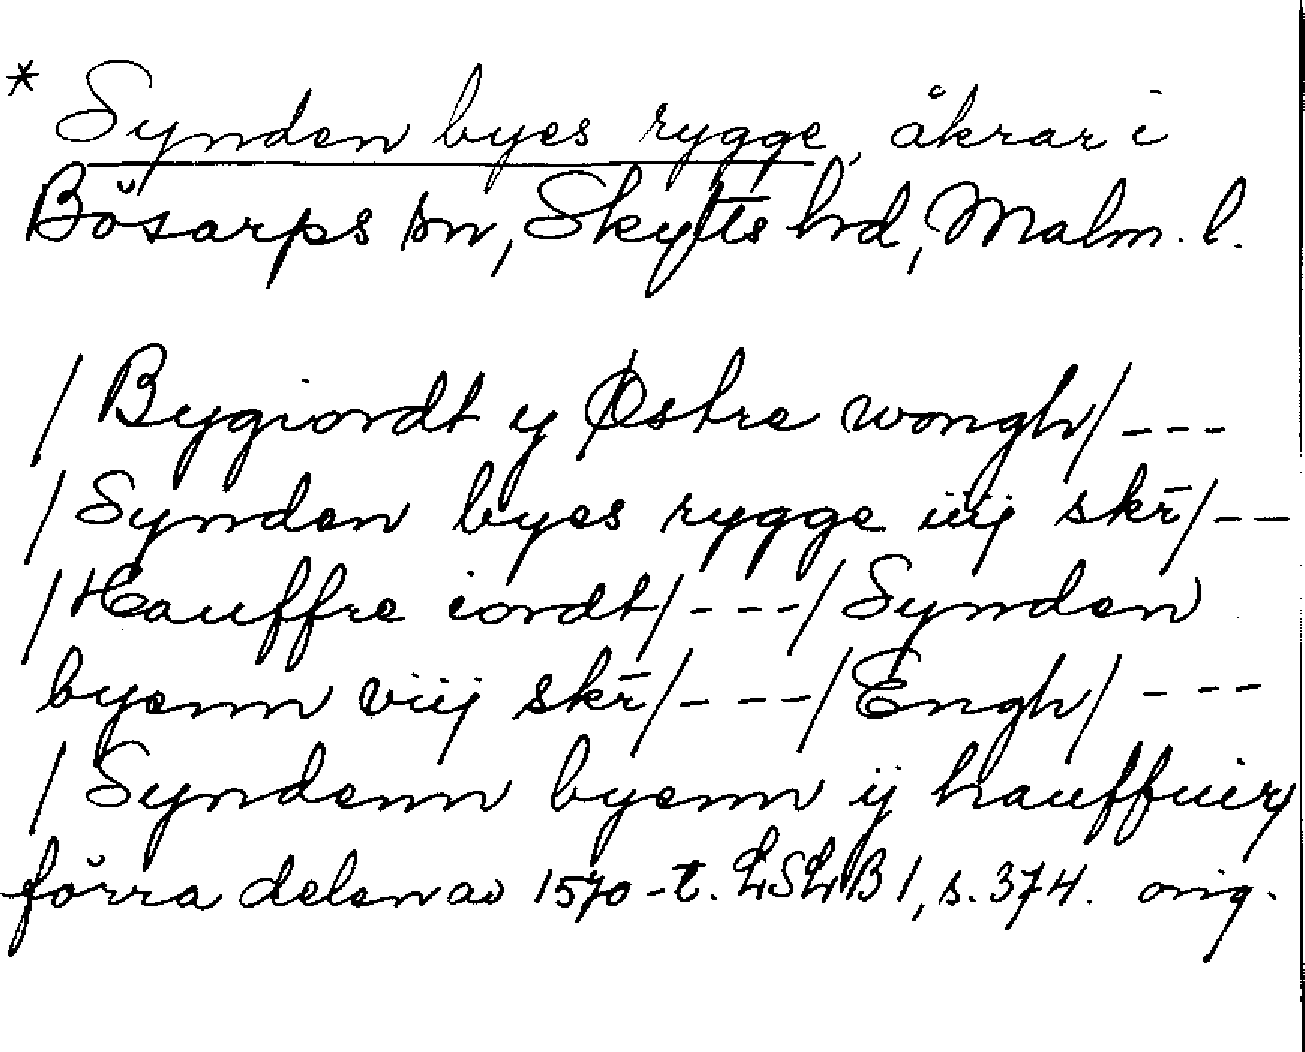 * Synden byes rygge, åkrar i
Bösarps sn, Skytts hd, Malm. l.
/Bygiordt y Østre wongh/---
/Synden byes rygge iiij skr̄/--
/Hauffre iordt/---/Synden
byenn viij skr̄/---/Engh/---
/Syndenn byenn ij hauffuier/
förra delen av 1570-t. LSLB 1, s. 374. orig.